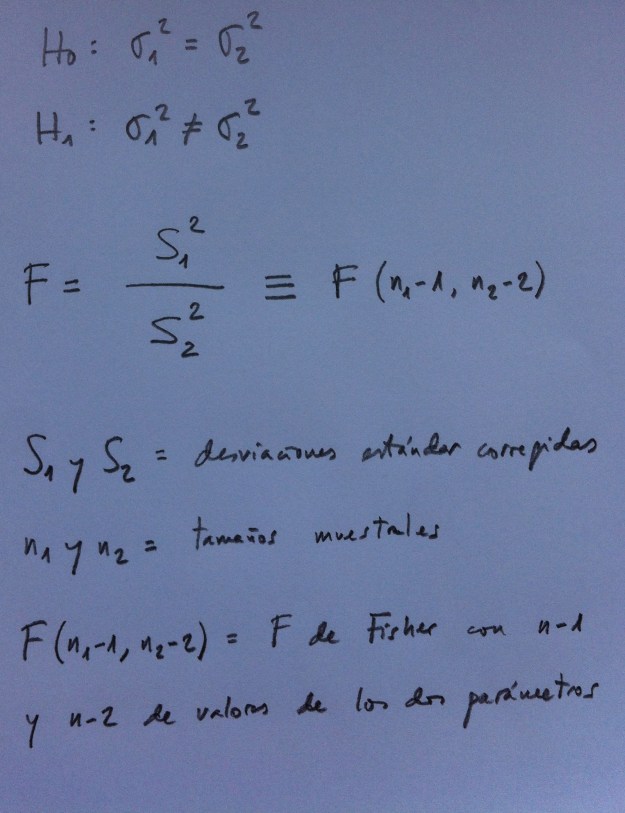 H0: σ1² = σ2²
H1: σ1² ≠ σ2²
F = S1² / S2² ≡ F (n1-1, n2-2)
S1 y S2 = desviaciones estándar corregidas
n1 y n2 = tamaños muestrales
F(n1-1, n2-2) = F de Fisher con n-1
y n-2 de valores de los dos parámetros